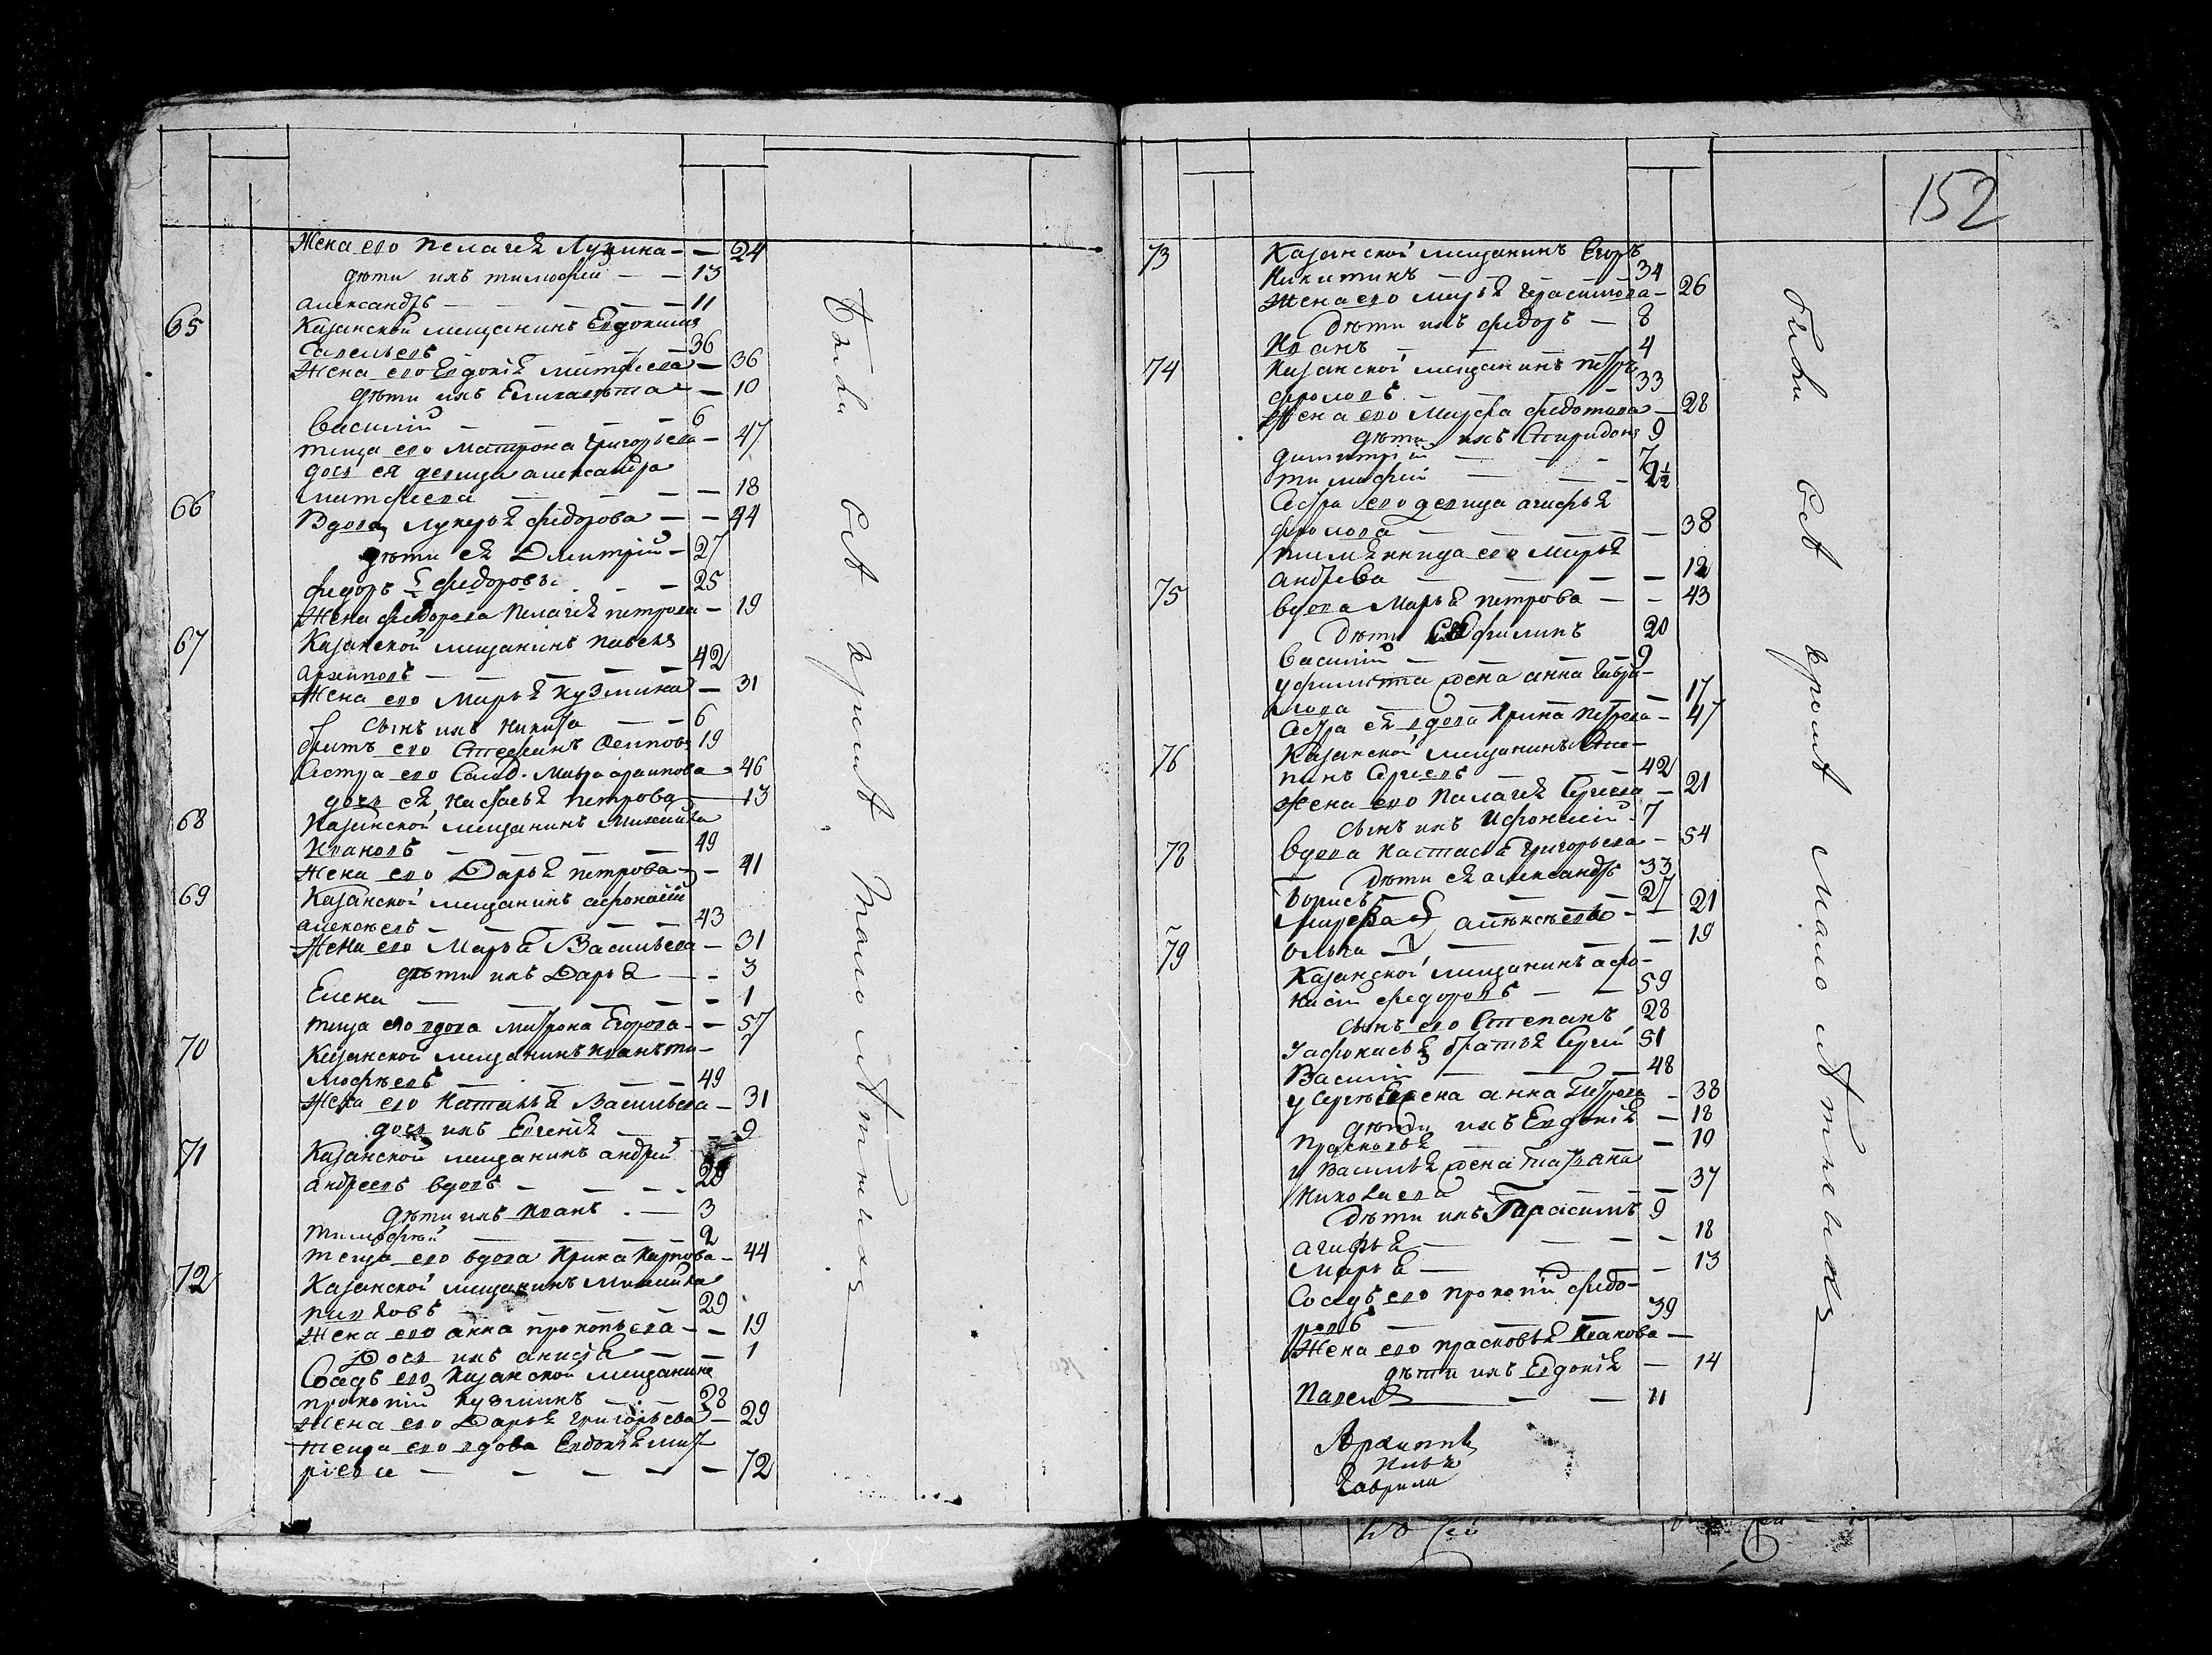 Жена его Пелагея Лукина — — 24
дѣти ихъ Тимофей — — 13
Александръ — — — 11
65 Казанской мещанинъ Евдокимъ
Савельевъ — — 36
Жена его Евдокія Матфеева — 36
дѣти ихъ Елисавета — 10
Василій — — 6
теща его Матрона Григорьева — 47
дочь ея девица Александра
Матфеева — — — 18
66 Вдова Лукерья Федорова — — 44
дѣти ея Дмитрій — 27
Федоръ Федоровы — — 25
Жена Федорова Пелагея Петрова — 19
67 Казанской мещанинъ Павелъ
Архиповъ — — — 42
Жена его Марья Кузмина — 31
сынъ ихъ Никита — — 6
братъ его Стефанъ Осиповъ 19
Сестра его Солд. Мавра Архипова — 46
дочь ея Настасья Петрова — 13
68 Казанской мещанинъ Михайла
Ивановъ — — — 49
Жена его Дарья Петрова — — 41
69 Казанской мещанинъ Афонасій
Алексѣевъ — — — 43
Жена его Марья Васильева — 31
дѣти ихъ Дарья — — 3
Елена — — — — 1
теща его вдова Матрона Егорова — — 57
70 Казанской мещанинъ Иванъ Ти- 7
мофѣевъ — — — 49
Жена его Наталья Васильева — 31
дочь ихъ Евгенія — — 9
71 Казанской мещанинъ Андрей
Андреевъ вдовъ — — — 29
дѣти ихъ Иванъ . — 3
Тимофей — — — 2
теща его вдова Ирина Карпова — 44
72 Казанской мещанинъ Михайла
29
Жена его Анна Прокопьева — — 19
Дочь ихъ Анисья — — 1
Сосѣдъ его Казанской мещанинъ
Прокопій Кузминъ — 28
Жена его Дарья Григорьева — 29
теща его вдова Евдокія Мат-
— — — — — 72
Были всѣ кромѣ мало лѣтныхъ
152
73 Казанской мещанинъ Егоръ
Никитинъ — — — 34
Жена его Марья Герасимова — 26
Дѣти ихъ Федоръ — 8
Иванъ — — — 4
74 Казанской мещанинъ Петръ
Фроловъ — — 33
Жена его Марфа Федотова — 28
дѣти ихъ Спиридонъ 9
Димитрій — — — 7
Тимофей — — — 1 1/2
Сестра его девица Агафья
Фролова — — — — 38
племянница его Марья
Андреева — — — — 12
75 Вдова Марья Петрова — — 43
Дѣти Филипъ 20
Василій — — — 9
у Филипа жена Анна Гаври-
лова — — — — 17
Сестра ея вдова Ирина Петрова — 47
76 Казанской мещанинъ Сте-
панъ Сергеевъ — — 42
Жена его Палагея Сергеева — 21
сынъ ихъ Афонасій — 7
78 Вдова Настасья Григорьева — 54
Дѣти ея Александръ 33
Борисъ — — — 27
Марфа Алексѣевы — — 21
Ольга — — — — 19
79 Казанской мещанинъ Афо-
насій Федоровъ — — 59
сынъ его Степанъ 28
У Афонасья братья Сергей 51
Василій — — — 48
у Сергѣя жена Анна Петрова — 38
дѣти ихъ Евдокія — 18
Прасковья — — — 10
у Василья жена Татьяна
Николаева — — — 37
Дѣти ихъ Гарасимъ 9
Агафья — — — — 18
Марья — — — 13
Сосѣдъ его Прокопій Федо-
ровъ — — — 39
Жена его Прасковья Иванова —
дѣти ихъ Евдокія — 14
Павелъ — — 11
Архиппъ
Гаврила
были всѣ кромѣ мало лѣтныхъ